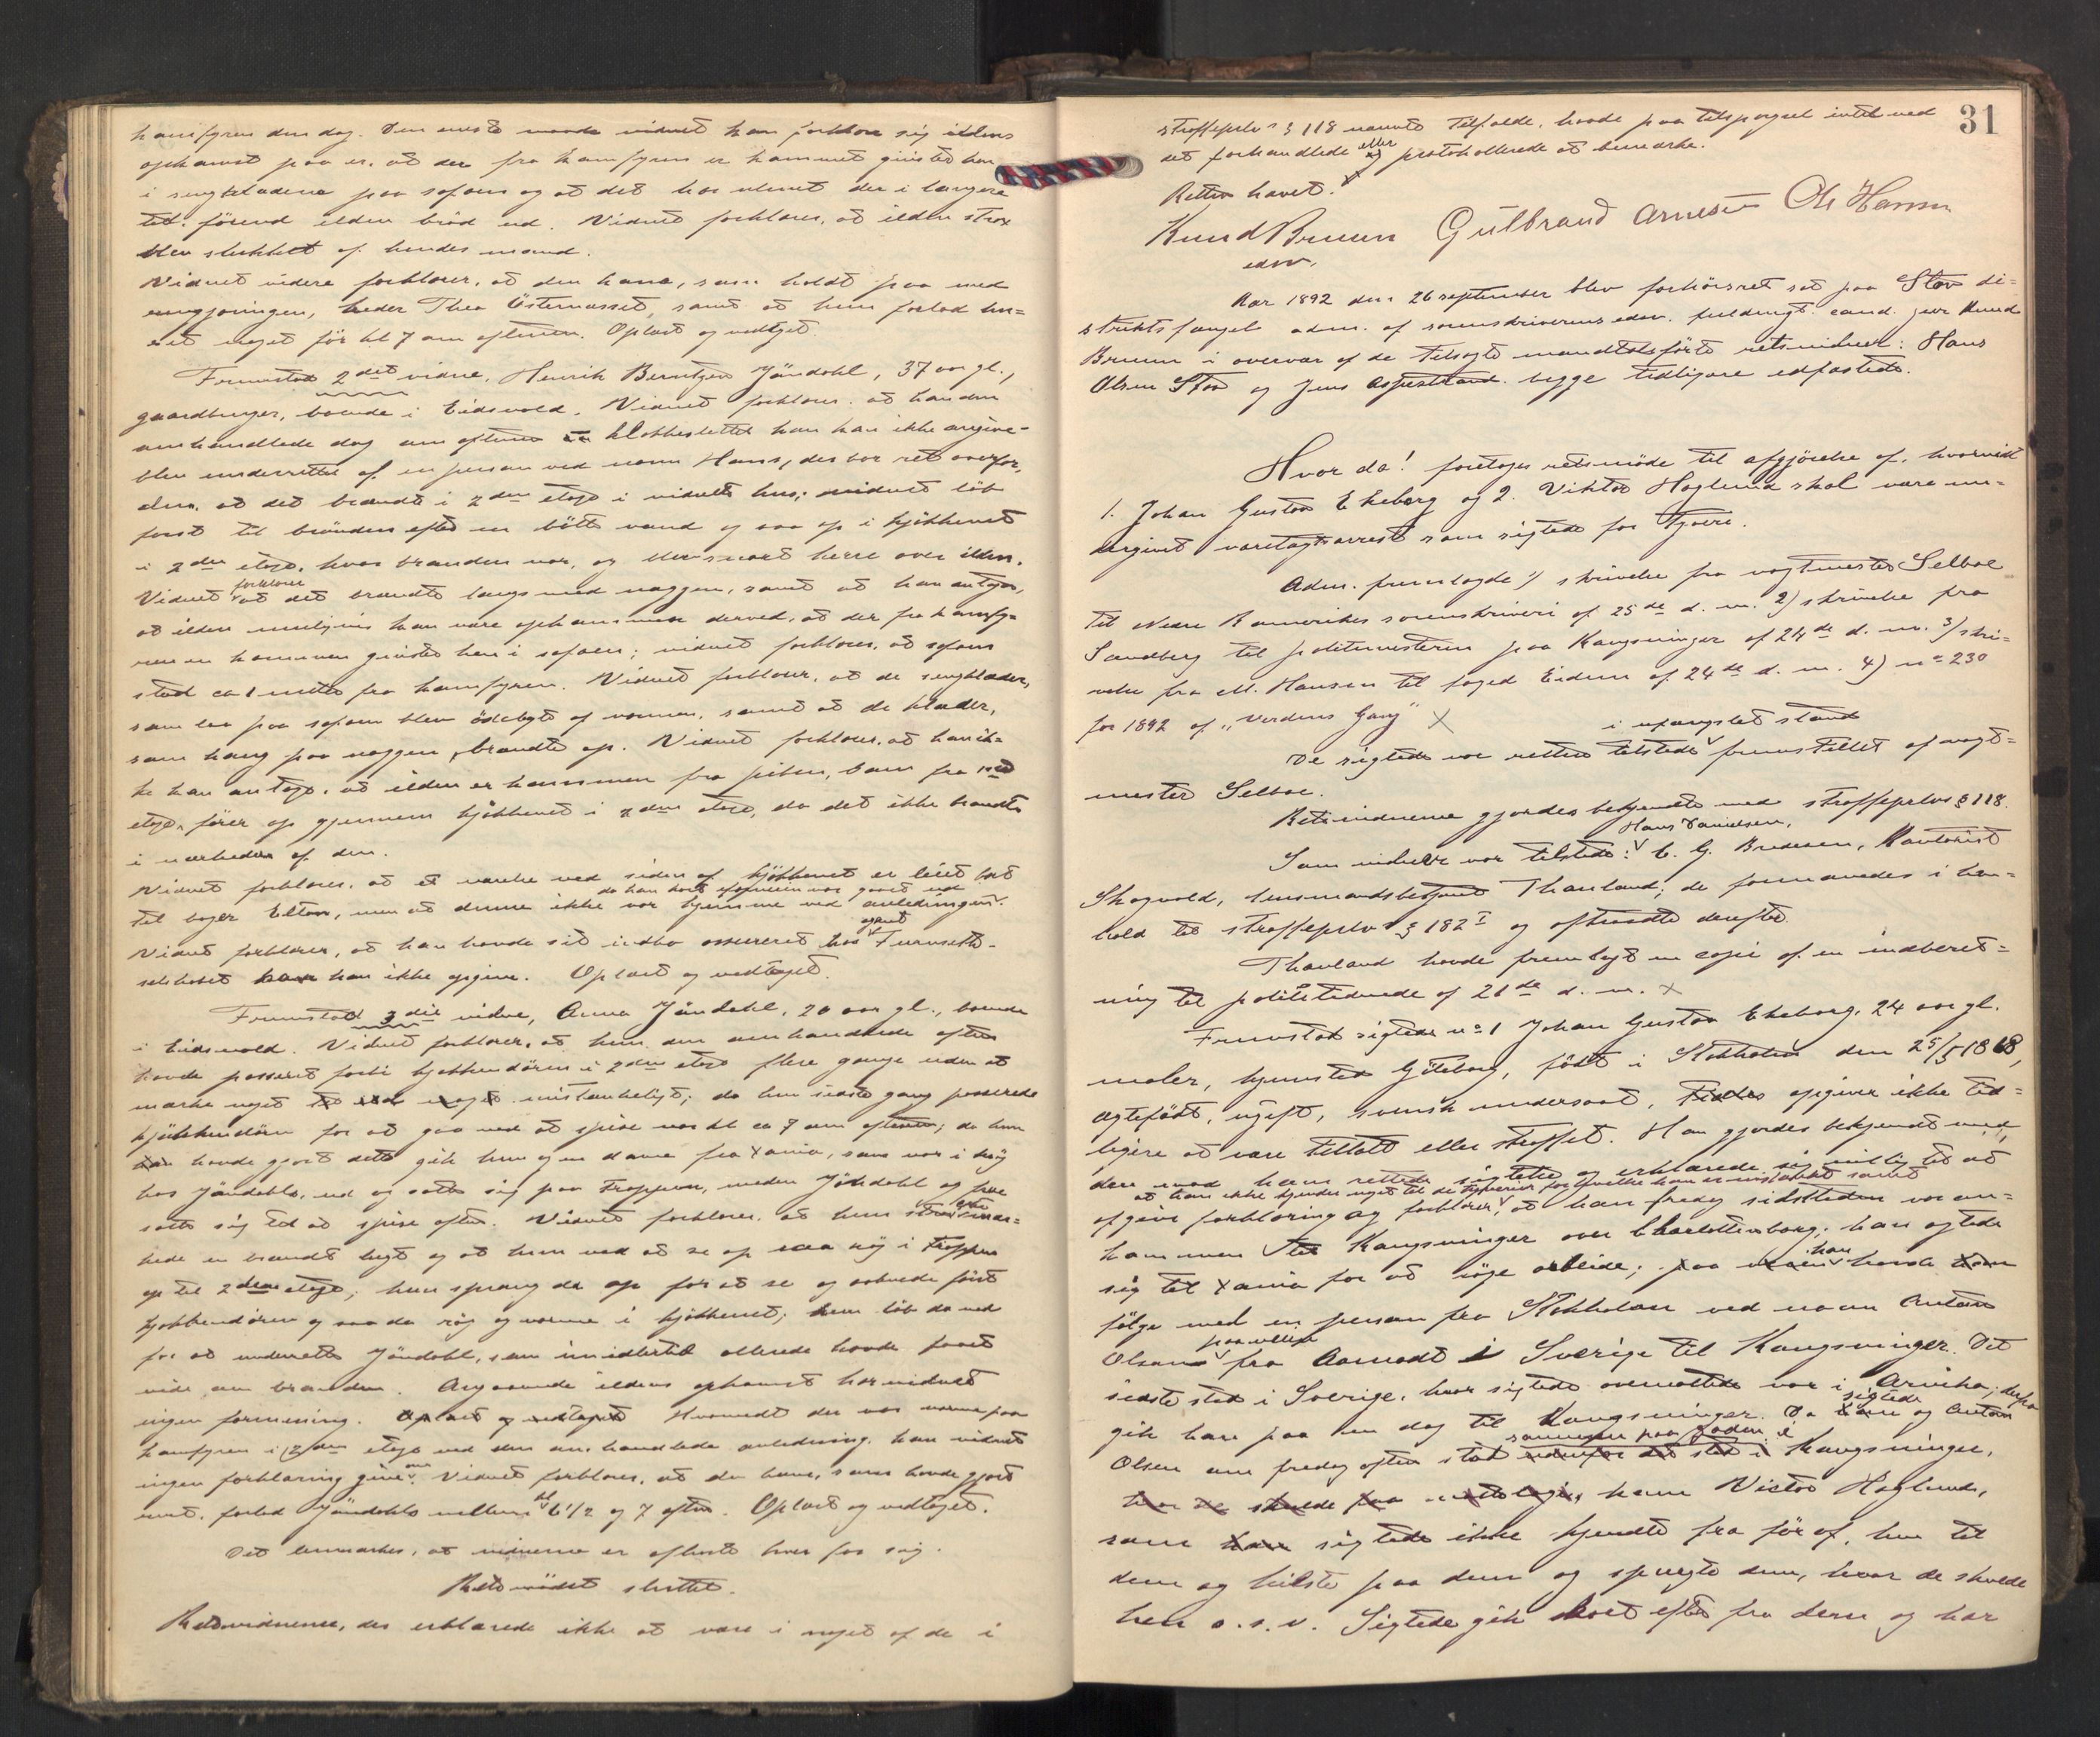 komfyren den dag. Den eneste maade vidnet kan forklare sig ildens
opkomst paa er, at der fra komfyren er kommet gnister hen
i sengklæderne paa sofaen og at det har ulmet der i længere
tid, förend ilden bröd ud. Vidnet forklarer, at ilden strax
blev slukket af hendes mand.
Vidnet videre forklarer, at den kone, som holdt paa med
rengjöringen, heder Thea Österaasset, samt at hun forlod hu=
set noget för kl 7 om aftenen. Oplæst og vedtaget.
Fremstod 2det vidne, Henrik Berntzen Jöndahl, 37 aar gl.,
gaardbruger, boende i Eidsvold. Vidnet forklarer, at han den
omhandlede dag om aftenen klokkeslettet kan han ikke angive
blev underrettet af en person ved navn Hans, der bor ret overfor
dem, at det brændte i 2den etage i vidnets hus; vidnet löb
först til brönden efter en bötte vand og saa op i kjökkenet
i 2den etage, hvor branden var, og blev snart herre over ilden.
forklarer
Vidnet at det brændte langs med væggen, samt at han antager,
at ilden muligvis kan være opkommen derved, at der fra komfy=
ren er kommen gnister hen i sofaen; vidnet forklarer, at sofaen
stod ca 1 meter fra komfyren. Vidnet forklarer, at de sengklæder,
som laa paa sofaen blev ödelagt af varmen, samt at de klæder,
som hang paa væggen, brændte op. Vidnet forklarer, at han ik=
ke kan antage, at ilden er kommen fra piben, som fra 1ste
etage förer op gjennem kjökkenet i 2den etage, da det ikke brændte
i nærheden af den.
Vidnet forklarer, at et værelse ved siden af kjökkenet er leiet bort
da han kort iforveien var gaaet ud
til bager Elton, men at denne ikke var hjemme ved anledningen.
agent
Vidnet forklarer, at han havde sit indbo assureret hos Furuseth
selskabet kan han ikke opgive. Oplæst og vedtaget.
Fremstod 3die vidne, Anna Jöndahl, 20 aar gl., boende
i Eidsvold. Vidnet forklarer, at hun den omhandlede aften
havde passeret forbi kjökkendören i 2den etage flere gange uden at
mærke noget mistænkeligt; da hun sidste gang passerede
kjökkendören for at gaa ned at spise var kl ca 7 om aftenen; da hun
havde gjort dette gik hun og en dame fra Xania, som var i besög
hos Jöndahls, ud og satte sig paa trappen, meden Jöndahl og frue
satte sig til at spise aften. Vidnet forklarer, at hun strax mær=
kede en brændt lugt og at hun ved at se op saa røg i trappen
op til 2den etage; hun sprang da op for at se og aabnede först
kjökkendören og saa da røg og varme i kjökkenet; hun löb da ned
for at underrette Jöndahl, som imidlertid allerede havde faaet
vide om branden. Angaaende ildens opkomst har vidnet
ingen formening. Oplæst og vedtaget Hvorvidt der var varme paa
komfyren i 2den etage ved den omhandlede anledning kan vidnet
ingen forklaring give om. Vidnet forklarer, at den kone, som havde gjort
rent, forlod Jöndahls mellem kl 6 1/2 og 7 aften. Oplæst og vedtaget.
Det bemærkes, at vidnerne er afhörte hver for sig.
Retsmödet sluttet.
Retsvidnerne, der erklærede ikke at være i noget af de i
31
straffeprlvs § 118 nævnte tilfælde, havde paa tilspørgsel intet ved
eller
det forhandlede protokollerede at bemærke.
Retten hævet.
Knud Bruun Gulbrand Arnesen Ol Hansen
edsv.
Aar 1892 den 26 september blev forhörsret sat paa Stav di=
striktsfængsel adm. af sorenskriverens edsv. fuldmægt. cand. jur Knud
Bruun i overvær af de tilsagte mandtalsförte retsvidner: Hans
Olsen Stav og Jens Aspestrand, begge tidligere edfæstede.
Hvor da! foretoges retsmöde til afgjörelse af, hvorvidt
1. Johan Gustav Ekeborg og 2. Viktor Höglund skal være un=
dergivet varetægtsarrest som sigtede for tyveri.
Adm. fremlagde 1) skrivelse fra vagtmester Selboe
til Nedre Romerikes sorenskriveri af 25de d. m. 2) skrivelse fra
Sandberg til politimesteren paa Kongsvinger af 24de d. m. 3) skri=
velse fra M. Hansen til foged Eidem af 24de d. m. 4) no 230
for 1892 af "Verdens Gang" X
i ufængslet stand
De sigtede var retten tilstede fremstillet af vagt=
mester Selboe.
Retsvidnerne gjordes bekjendte med straffeprlvs § 118.
Hans Danielsen,
Som vidner var tilstede: C. G. Bredesen, Kontorist
Skogvold, lensmandsbetjent Thanland; de formanedes i hen=
hold til straffeprlvs § 182 I og aftraadte derefter.
Thanland havde fremlagt en copi af en indberet=
ning til politistedende af 26de d. m. X
Fremstod sigtede no 1 Johan Gustav Ekeborg, 24 aar gl.
maler, hjemsted Göteborg, födt i Stokholm den 25/5 1868,
ægtefödt, ugift, svensk undersaat, opgiver ikke tid=
ligere at være tiltalt eller straffet. Han gjordes bekjendt med
den mod ham rettede sigtelse og erklærede sig villig til at
at han ikke kjender noget til de tyverier for hvilke han er mistænkt samt
afgive forklaring og forklarer, at han fredag sidstleden var an=
kommen til Kongsvinger over Charlottenborg; han agtede
sig til Xania for at söge arbeide; han havde
fölge med en person fra Stokholm ved navn Anton
paa veien
Olsen fra Aamodt i Sverige til Kongsvinger. Det
sidste sted i Sverige, hvor sigtede overnattede var i Arvika, derfra
sigtede
gik han paa en dag til Kongsvinger. Da og Anton
sammen paa gaden i
Olsen om fredag aften stod Kongsvinger,
kom Victor Höglund,
som sigtede ikke kjendte fra för af, hen til
dem og hilste paa dem og spurgte dem, hvor de skulde
hen o. s. v. Sigtede gik kort efter fra dem og har